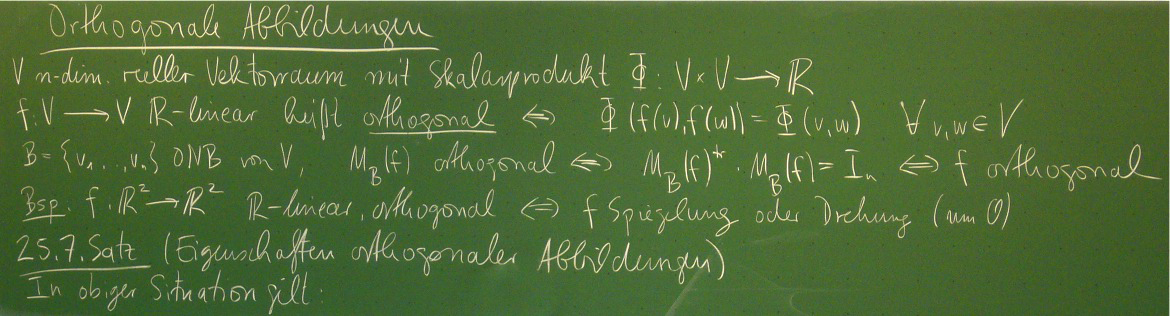 Orthogonale Abbildungen
V n-dim. reeller Vektorraum mit Skalarprodukt Φ: V × V → ℝ
f: V → V ℝ-linear heißt orthogonal ⇔ Φ(f(v), f(w)) = Φ(v,w) ∀ v,w ∈ V
B = {v₁, ..., vₙ} ONB von V, M_B(f) orthogonal ⇔ M_B(f)^tr · M_B(f) = Iₙ ⇔ f orthogonal
Bsp.: f: ℝ² → ℝ² ℝ-linear, orthogonal ⇔ f Spiegelung oder Drehung (um 0)
25.7. Satz (Eigenschaften orthogonaler Abbildungen)
In obiger Situation gilt: